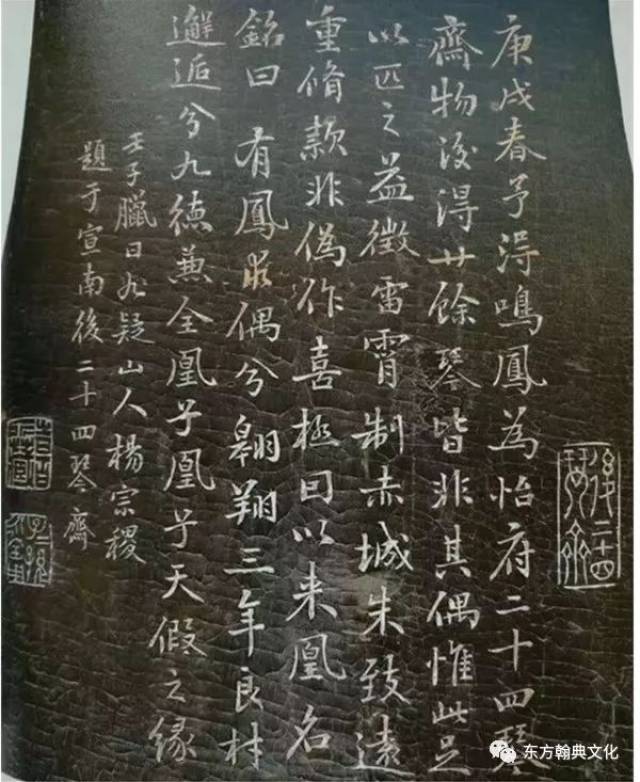 庚戌春予得鳴鳳為怡府二十四琴
齋物後得廿餘琴皆非其偶惟此足
以匹之益徵雷霄制赤城朱致遠
重脩款非偽作喜極因以来凰名
銘曰 有鳳求偶兮翱翔三年良材
邂逅兮九德兼全凰予凰予天假之緣
壬子臘日九疑山人楊宗稷
題于宣南後二十四琴齋
後二十四琴齋
楊
藏
东方翰典文化